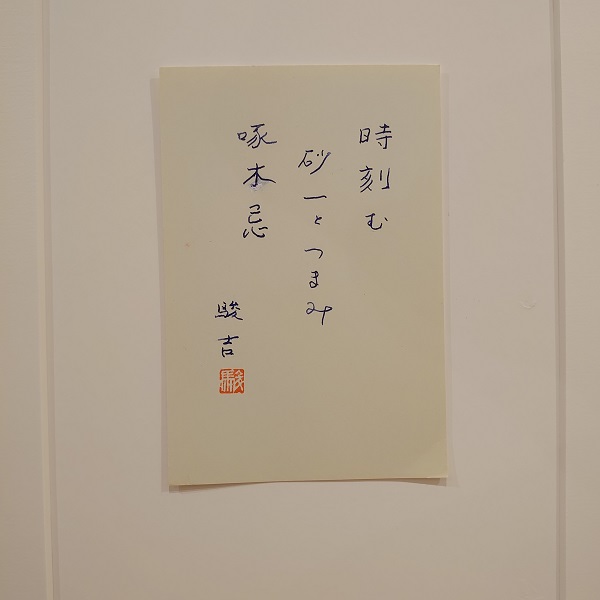 時刻む
砂一とつまみ
啄木忌
駿吉